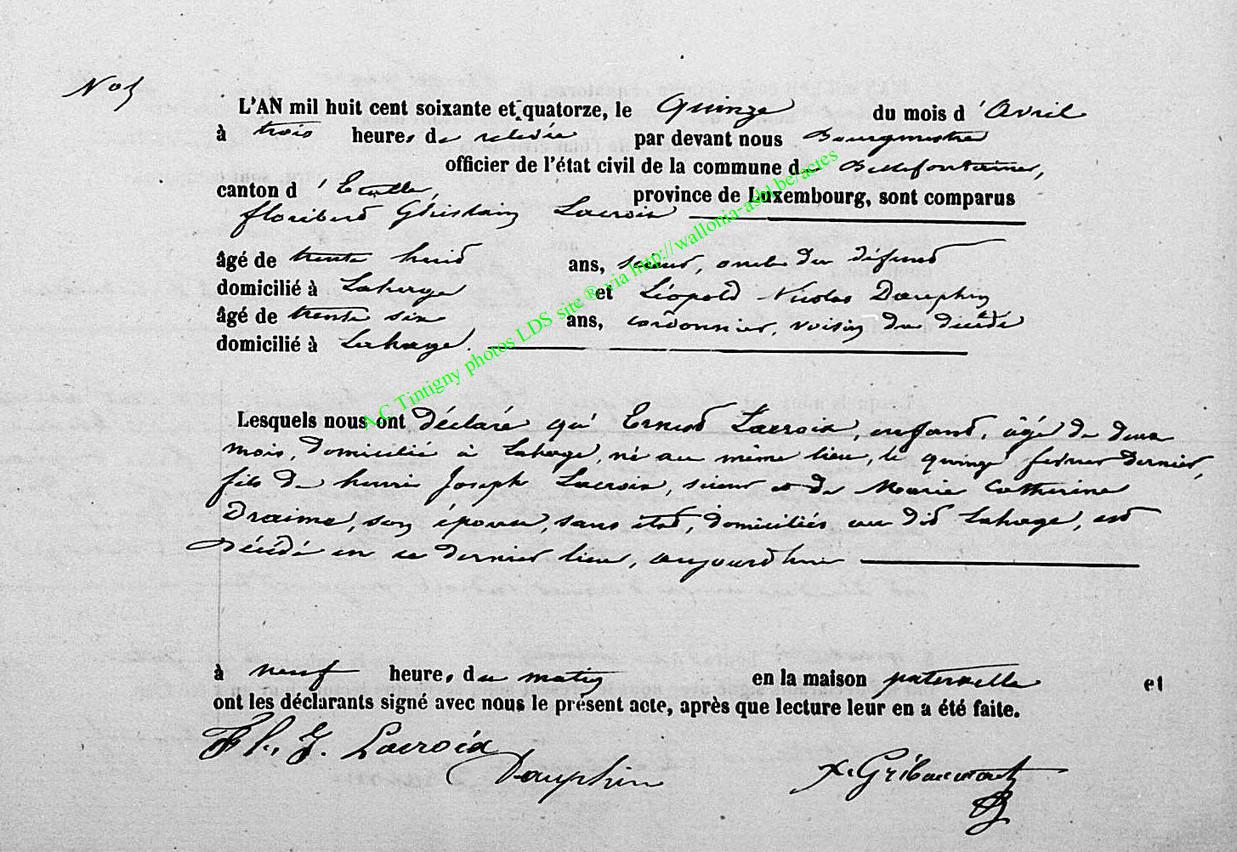 N° 5
L'AN mil huit cent soixante et quatorze, le Quinze du mois d'Avril
à trois heures de relevée par devant nous Bourgmestre
officier de l'état civil de la commune de Bellefontaine,
canton d'Etalle, province de Luxembourg, sont comparus
Floribert Ghislain Lacroix
âgé de trente huit ans, scieur, oncle du défunt
domicilié à Lahage et Léopold Nicolas Dauphin
âgé de trente six ans, cordonnier, voisin du décédé
domicilié à Lahage.
Lesquels nous ont déclaré qu'Ernest Lacroix, enfant, âgé de deux
mois, domicilié à Lahage, né au même lieu, le quinze fevrier dernier,
fils de henri Joseph Lacroix, scieur et de Marie Catherine
Draime, son épouse, sans état, domiciliés au dit Lahage, est
décédé en ce dernier lieu, aujourd'hui
à neuf heures du matin en la maison paternelle et
ont les déclarants signé avec nous le présent acte, après que lecture leur en a été faite.
Lacroix
Dauphin
A.C Tintigny photos LDS site ® via http://wallonia-asbl.be/actes